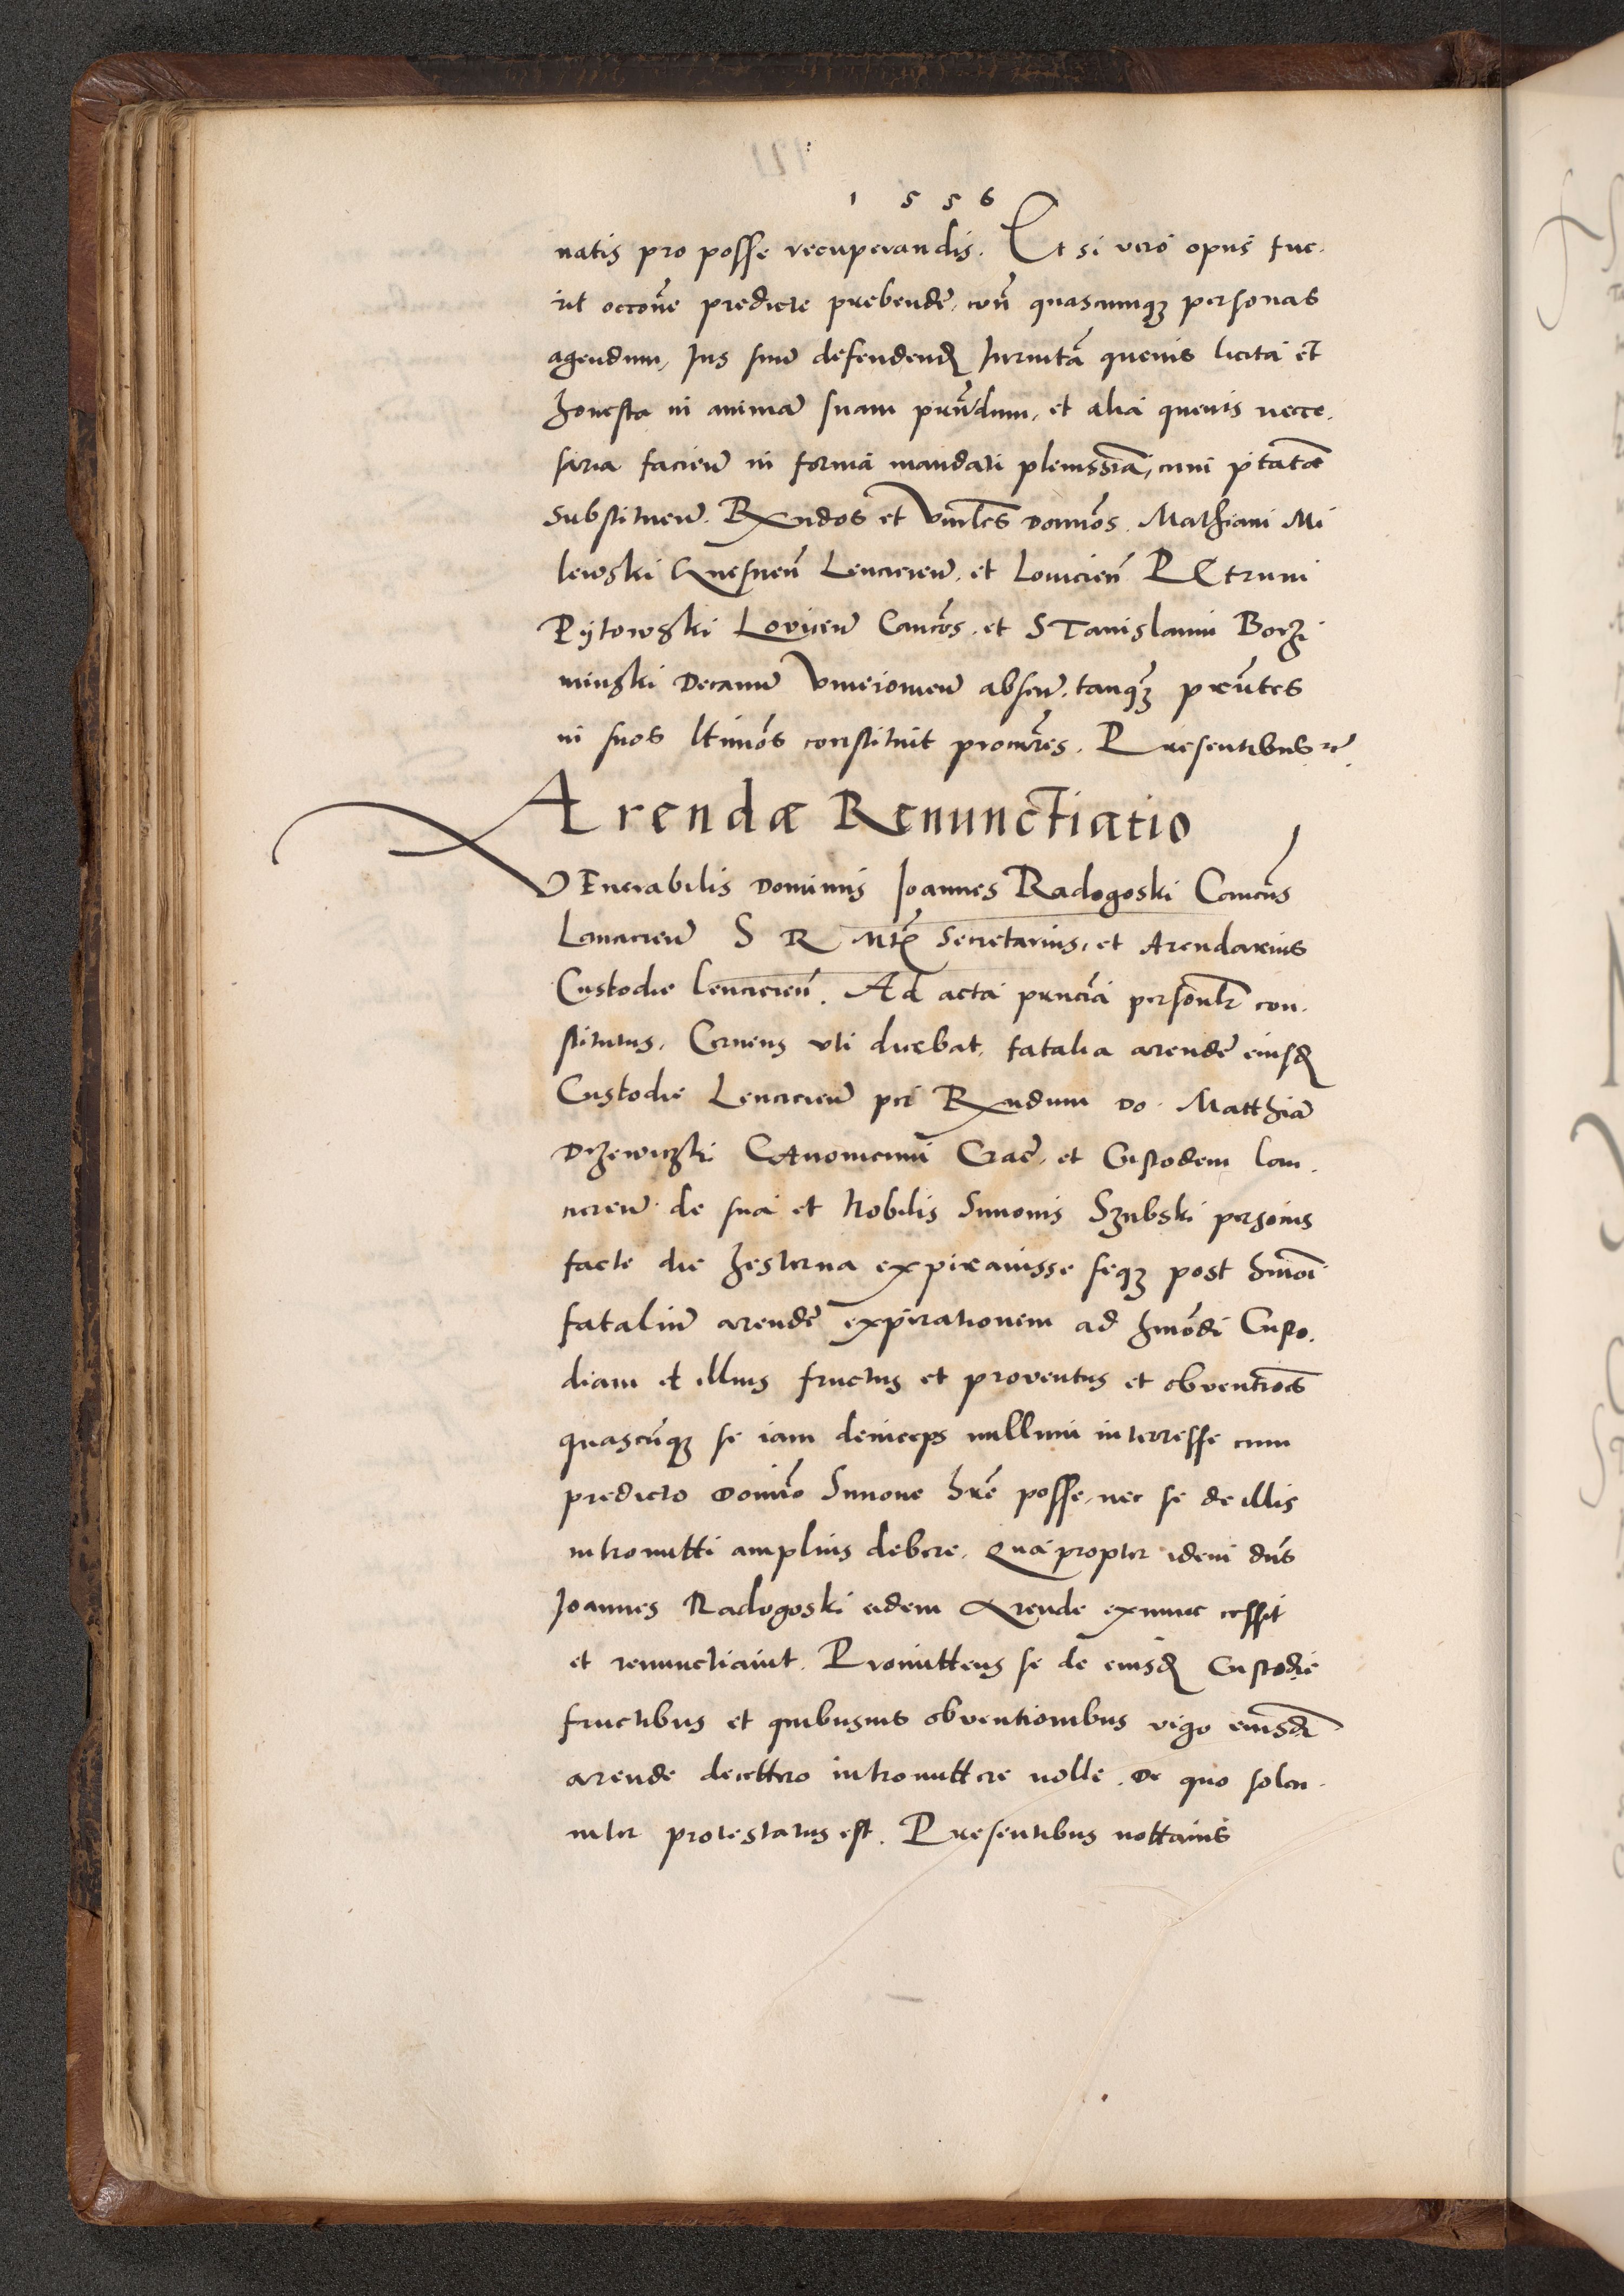 1 5 5 6
natis pro posse recuperandis. Et si vero opus fue.
rit occōne predicte prebende, con̄ quascunqꝫ personas
agendum, Jus suū defendendū Juramtā quevis licita et
honesta in animā suam prn̄dum, et alia quevis nece.
saria faciēn in forma mandati plenissīa, cum ptātē
Substituēn. Rxndos et Vnrles domōs. Mathiam Mi
lewski Gnesnen̄ Lencicien̄, et Loviciēn PEtrum
Pijtowski Lovicien̄ Cancōs, et STanislaum Borzi
minski Decanū Vnieiovien̄ absen̄, tanqꝫ prn̄tes
in suos ltimōs constituit procurēs. Presentibus rc̄.
Arendæ Renunctiatio
VEnerabilis Dominus Joannes Radogoski Cancūs
Lancicien̄ S R Mtꝭ Secretarius, et Arendarius
Custodie lencicien̄. Ad acta prncīa persōnlr con.
stitutus. Cernens uti dicebat, fatalia arende eiusdē
Custodie Lencicien̄ per Rxndum Do. Matthiā
Drzewiczki CAnonicum Crac̄, et Custodem lan.
cicien̄ de sua et Nobilis Simonis Szubski personis
facte die hesterna expiravisse seqꝫ post hmōi
fataliū arende expirationem ad hmōdi Custo.
diam et illius fructus et proventus et obventiōes
quascūqꝫ se iam deinceps nullum interresse cum
predicto Domīo Simone hrē posse, nec se de illis
intromitti amplius debere. Qua propter idem dn̄s
Joannes Radogoski eidem Arende exnunc cessit
et renunctiavit. Promittens se de eiusdē Custodie
fructibus et quibusvis obventionibus vigo eiusdē
arende decettero intromittere nolle. De quo solen.
niter protestatus est. Presentibus nottariis